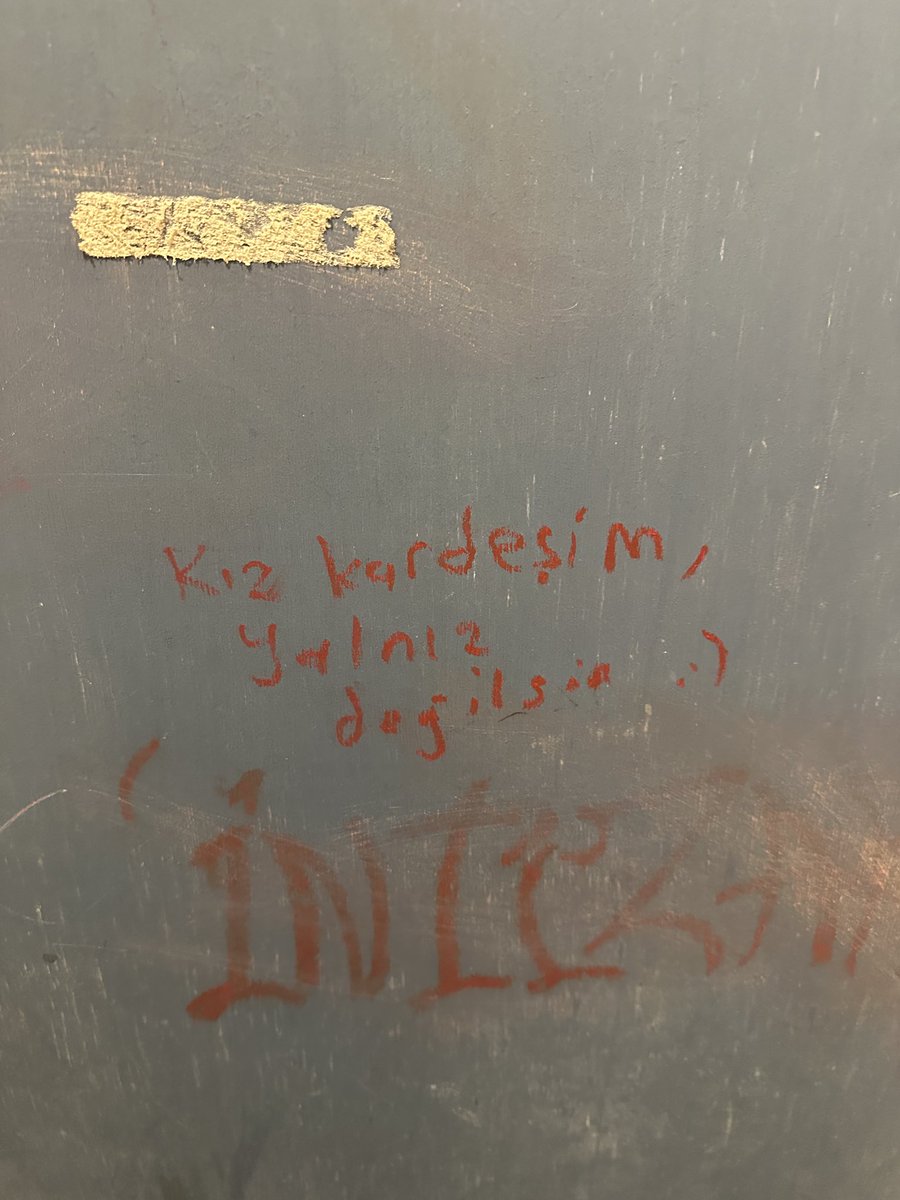 Kız kardeşim,
yalnız
değilsin :)